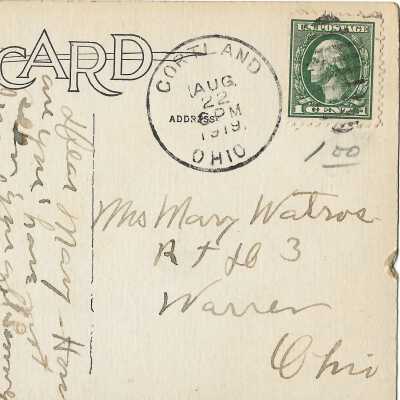 CARD
CORTLAND
AUG.
22
PM
1919.
OHIO
ADDRESS
U.S. POSTAGE
1 CENT 1
1.00
Mrs Mary Watros
R F D 3
Warren
Ohio
Dear Mary - How
are you? have got